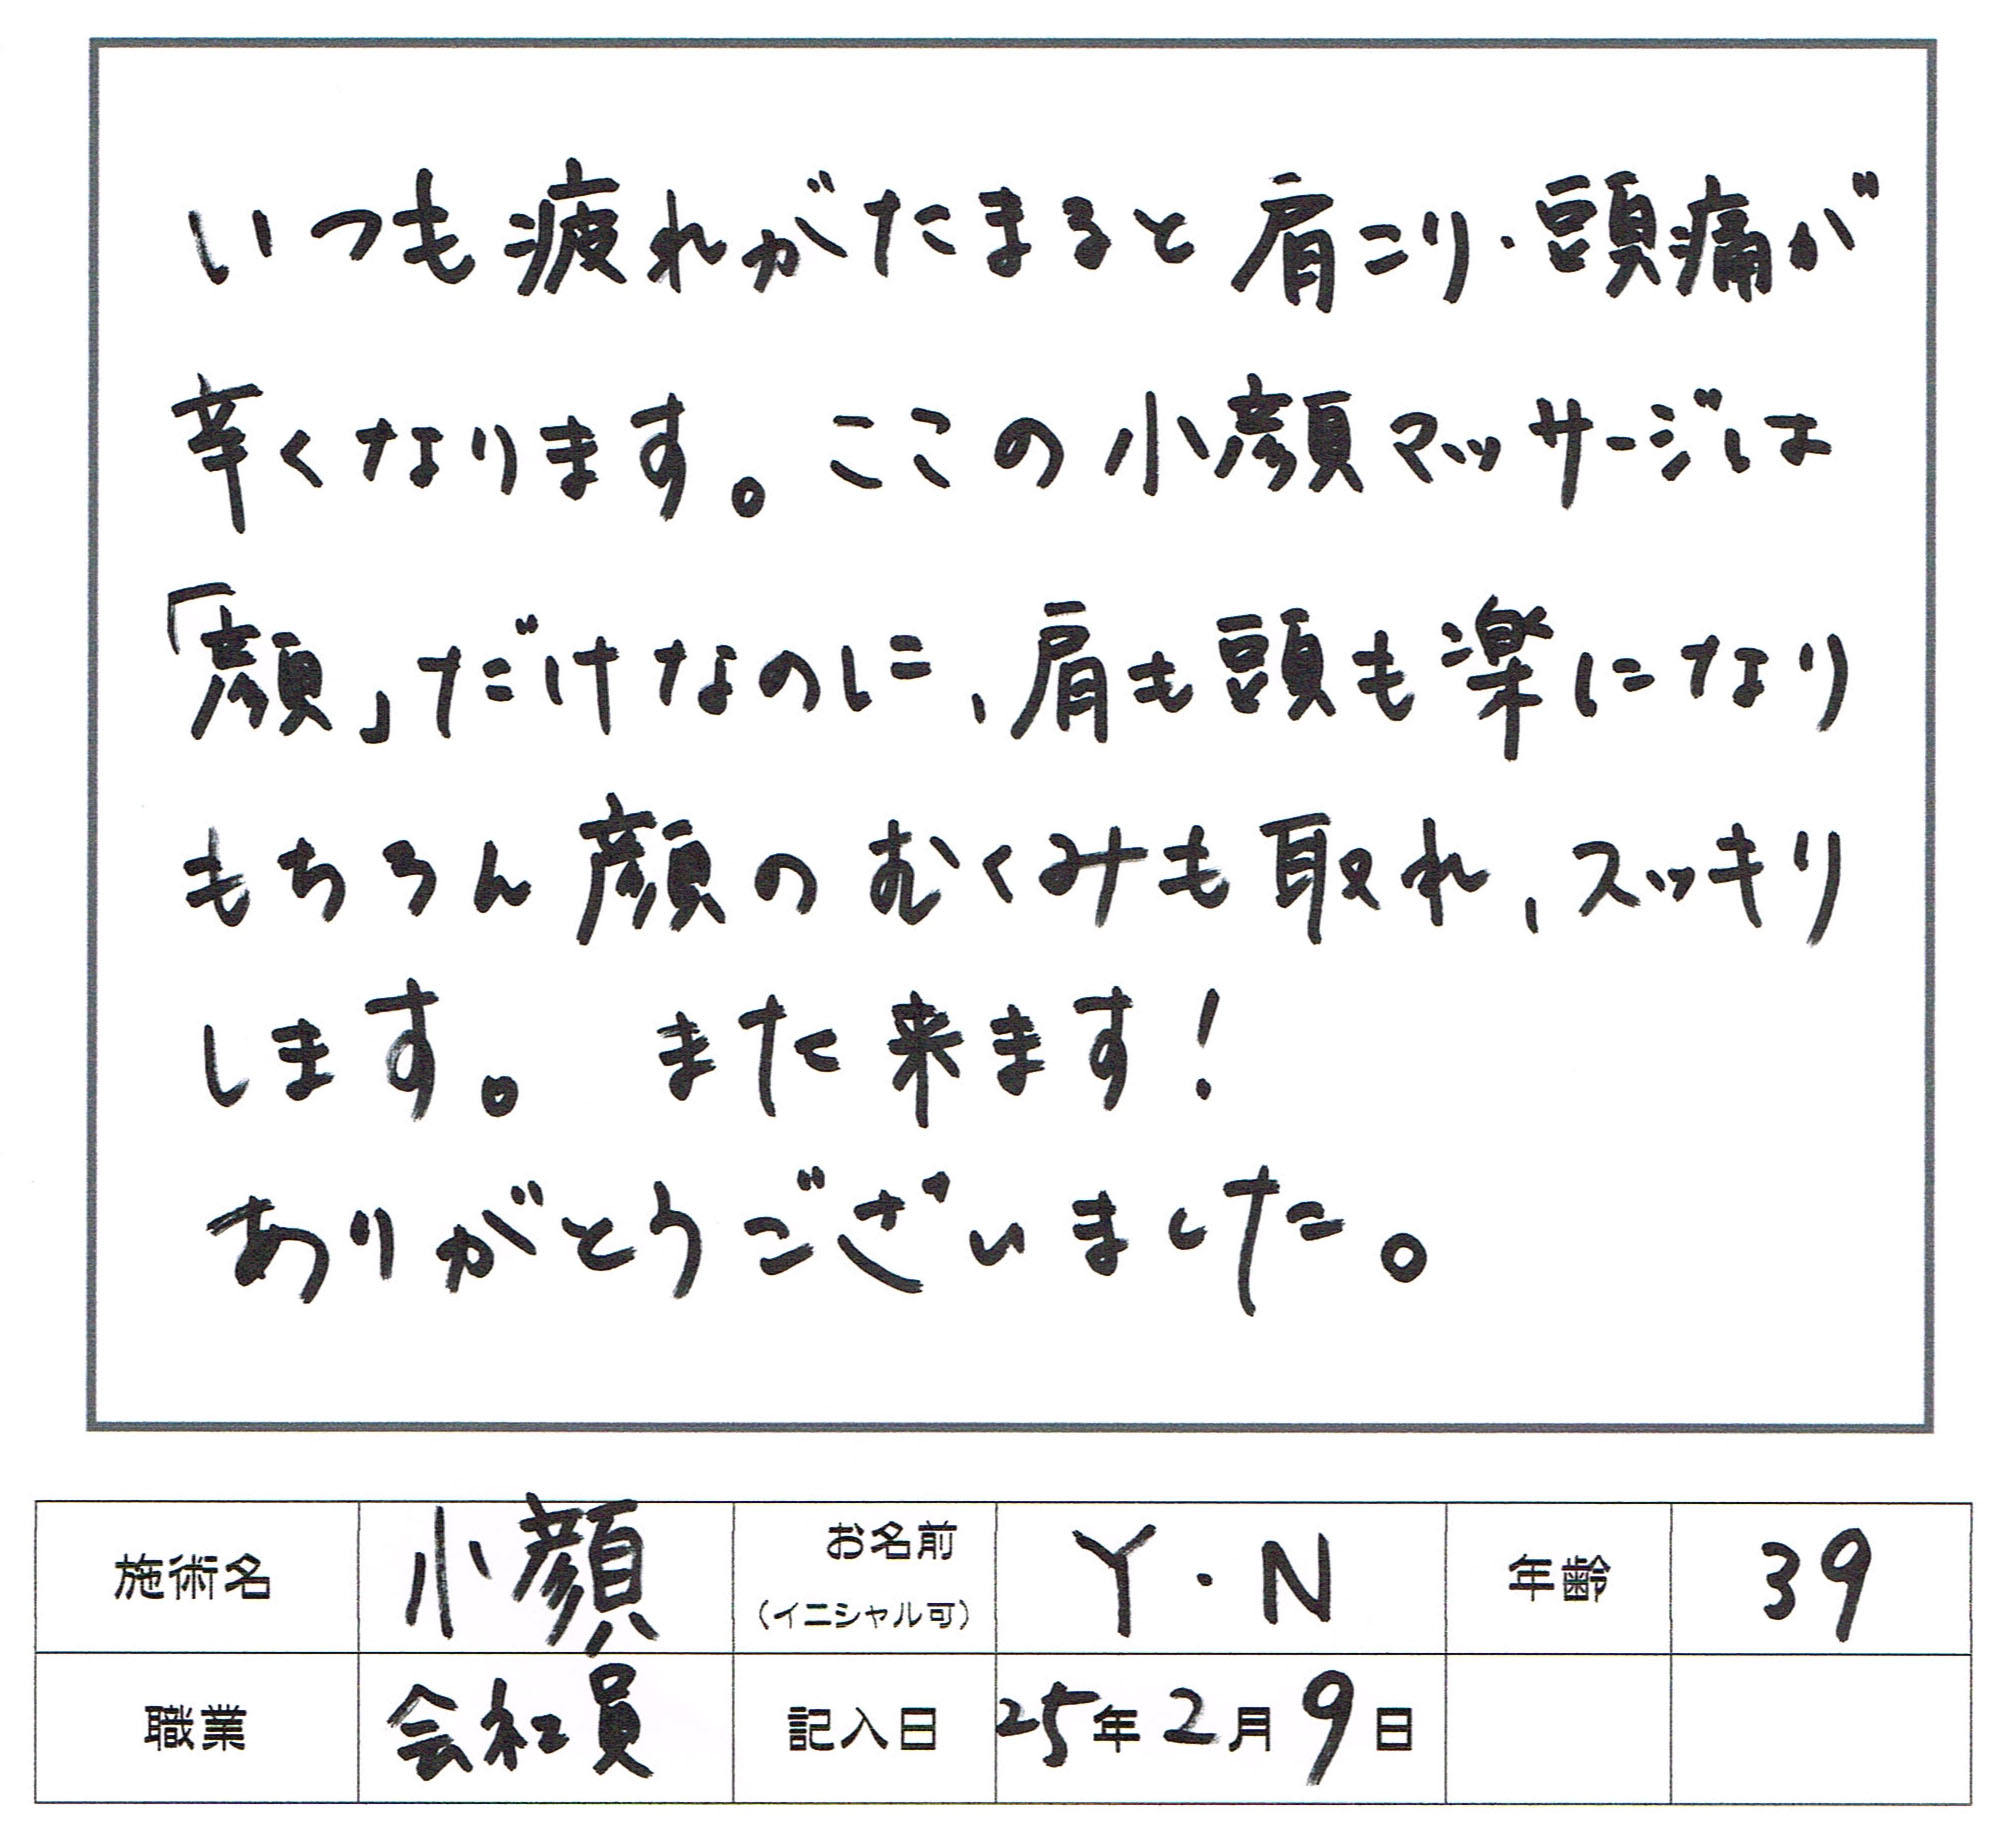 いつも疲れがたまると肩こり・頭痛が
辛くなります。ここの小顔マッサージは
「顔」だけなのに、肩も頭も楽になり
もちろん顔のむくみも取れ、スッキリ
します。また来ます!
ありがとうございました。
施術名 小顔 お名前 (イニシャル可) Y・N 年齢 39
職業 会社員 記入日 25年2月9日